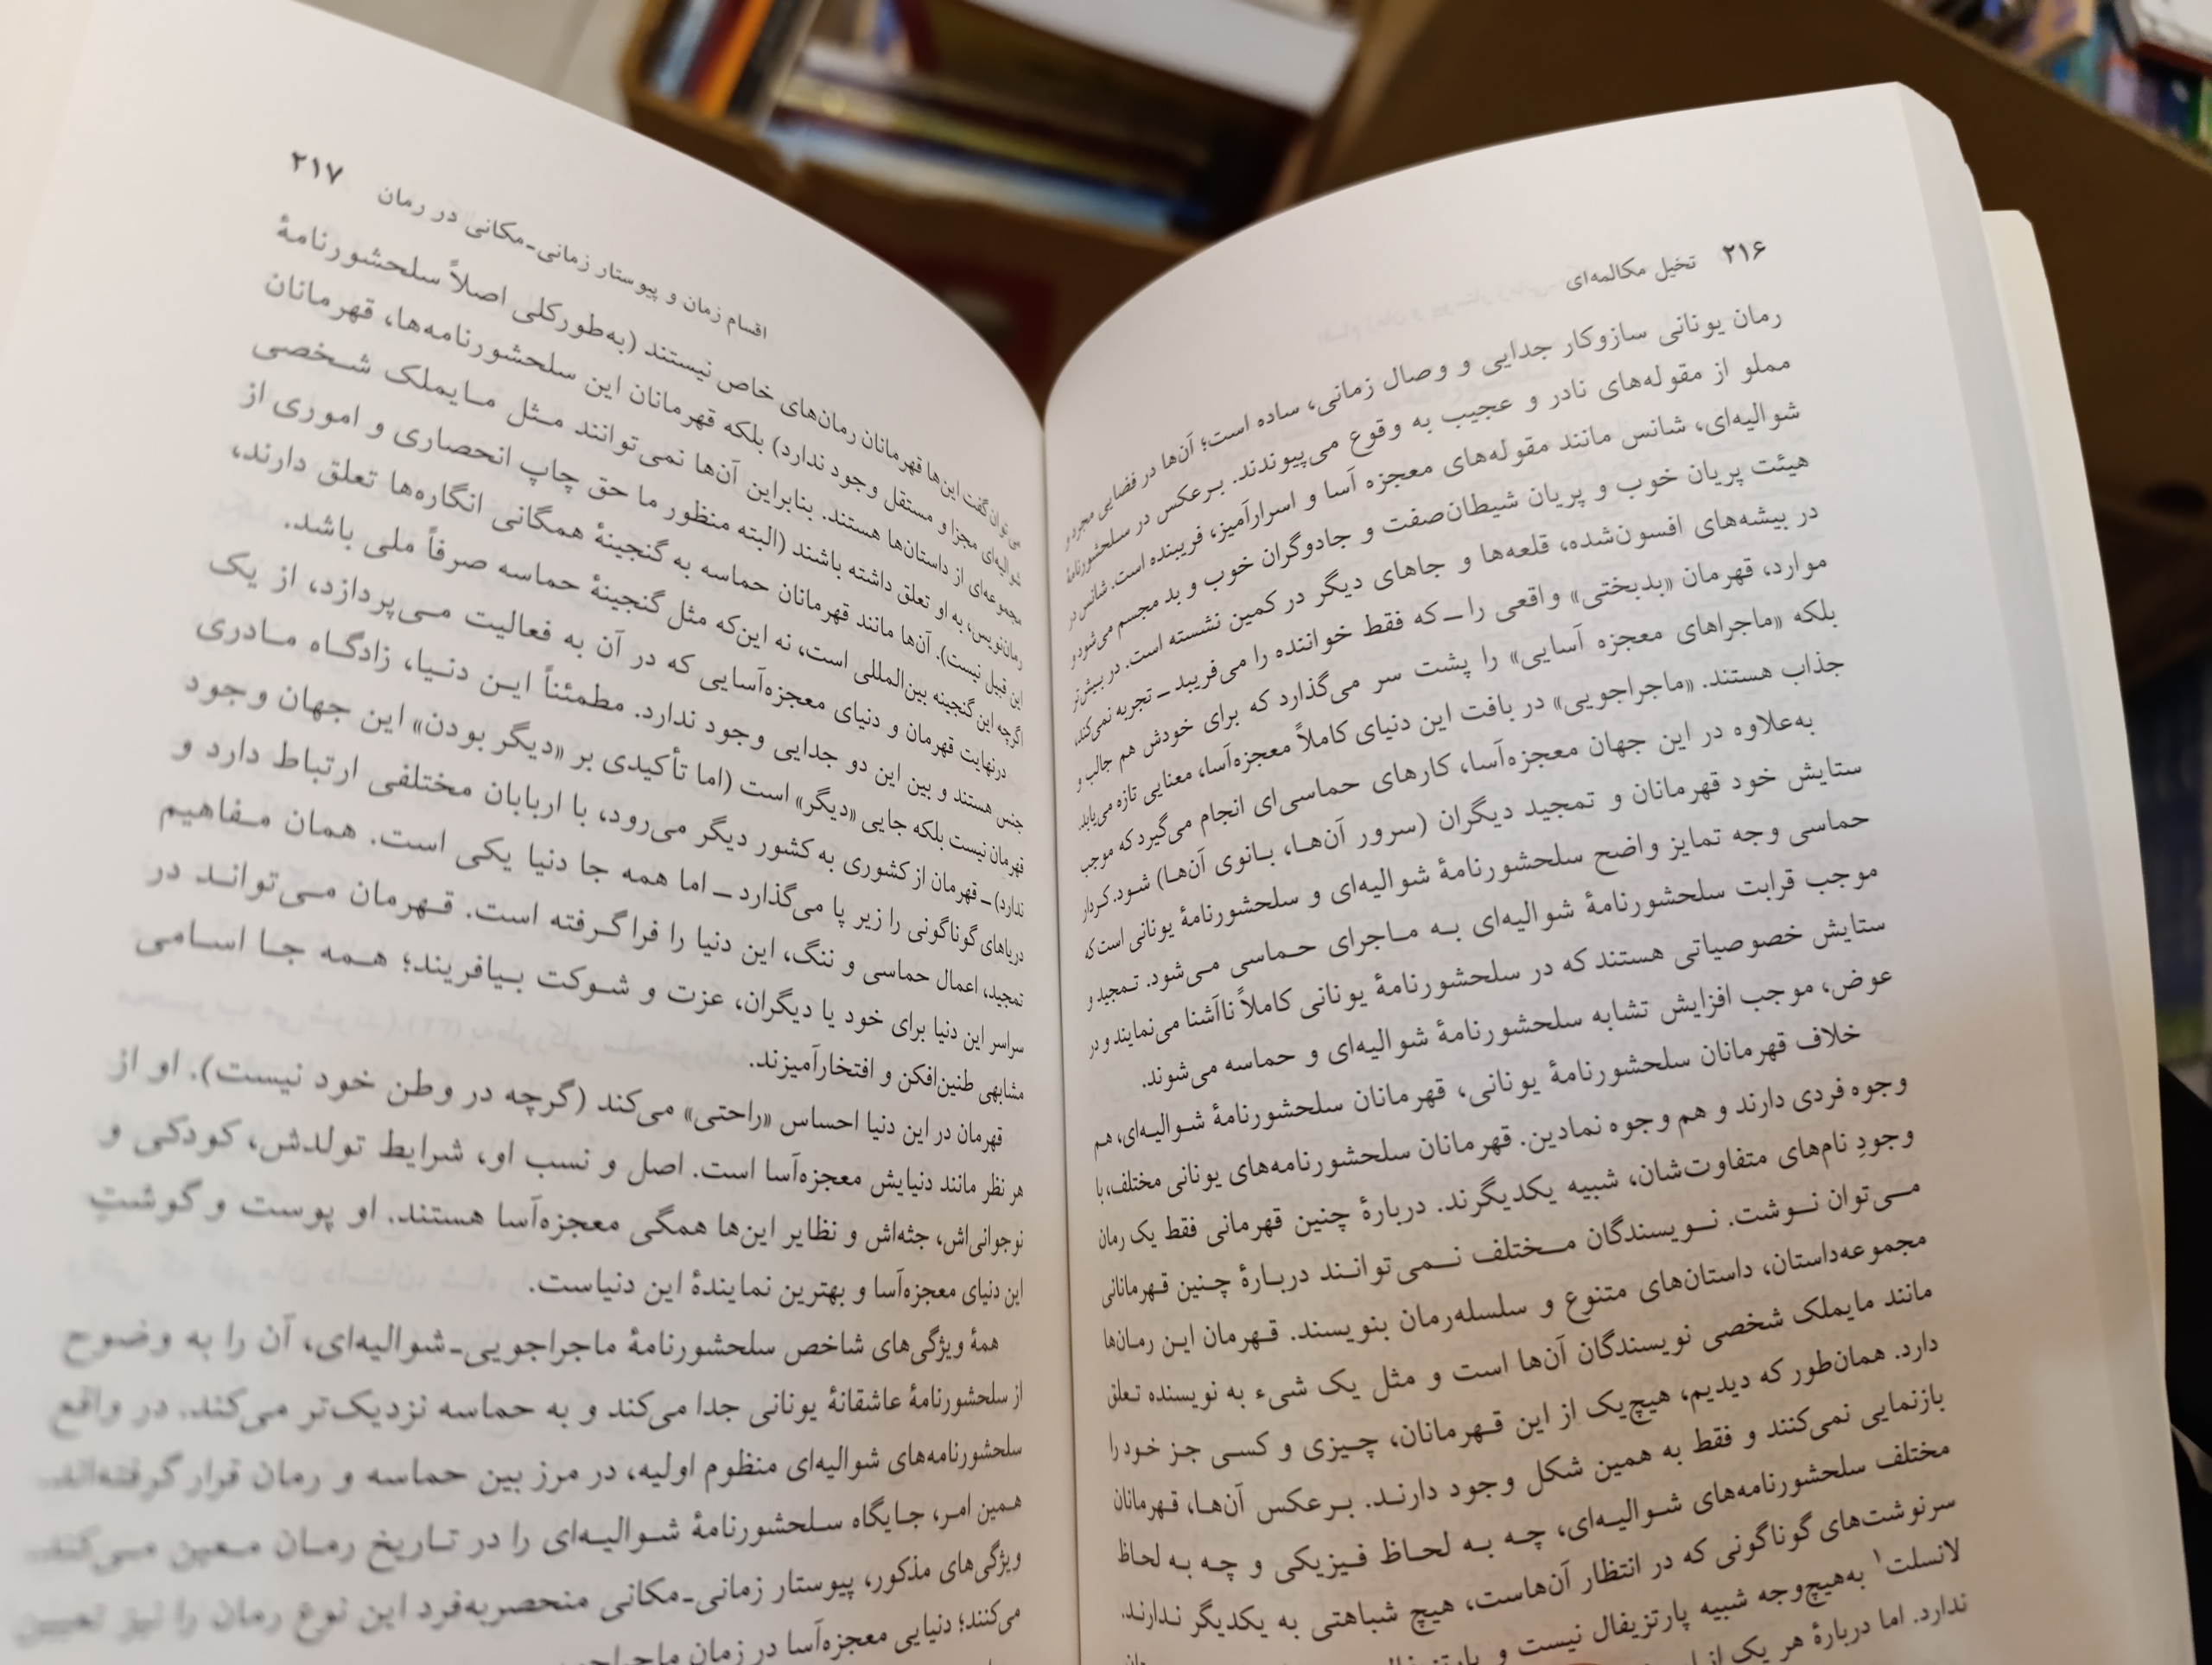 ۲۱۶ تخیل مکالمه‌ای
رمان یونانی سازوکار جدایی و وصال زمانی، ساده است؛ آن‌ها در فضایی مجرد و
مملو از مقوله‌های نادر و عجیب به وقوع می‌پیوندند. برعکس در سلحشورنامهٔ
شوالیه‌ای، شانس مانند مقوله‌های معجزه آسا و اسرارآمیز، فریبنده است. شانس در
هیئت پریان خوب و پریان شیطان‌صفت و جادوگران خوب و بد مجسم می‌شود و
در بیشه‌های افسون‌شده، قلعه‌ها و جاهای دیگر در کمین نشسته است. در بیش‌تر
موارد، قهرمان «بدبختی» واقعی را ــ که فقط خواننده را می‌فریبد ــ تجربه نمی‌کند،
بلکه «ماجراهای معجزه آسایی» را پشت سر می‌گذارد که برای خودش هم جالب و
جذاب هستند. «ماجراجویی» در بافت این دنیای کاملاً معجزه‌آسا، معنایی تازه می‌یابد.
به‌علاوه در این جهان معجزه‌آسا، کارهای حماسی‌ای انجام می‌گیرد که موجب
ستایش خود قهرمانان و تمجید دیگران (سرور آن‌ها، بانوی آن‌ها) شود. کردار
حماسی وجه تمایز واضح سلحشورنامهٔ شوالیه‌ای و سلحشورنامهٔ یونانی است که
موجب قرابت سلحشورنامهٔ شوالیه‌ای به ماجرای حماسی می‌شود. تمجید و
ستایش خصوصیاتی هستند که در سلحشورنامهٔ یونانی کاملاً ناآشنا می‌نمایند و در
عوض، موجب افزایش تشابه سلحشورنامهٔ شوالیه‌ای و حماسه می‌شوند.
خلاف قهرمانان سلحشورنامهٔ یونانی، قهرمانان سلحشورنامهٔ شوالیه‌ای، هم
وجوه فردی دارند و هم وجوه نمادین. قهرمانان سلحشورنامه‌های یونانی مختلف، با
وجودِ نام‌های متفاوت‌شان، شبیه یکدیگرند. دربارهٔ چنین قهرمانی فقط یک رمان
می‌توان نوشت. نویسندگان مختلف نمی‌توانند دربارهٔ چنین قهرمانانی
مجموعه‌داستان، داستان‌های متنوع و سلسله‌رمان بنویسند. قهرمان این رمان‌ها
مانند مایملک شخصی نویسندگان آن‌ها است و مثل یک شیء به نویسنده تعلق
دارد. همان‌طور که دیدیم، هیچ‌یک از این قهرمانان، چیزی و کسی جز خود را
بازنمایی نمی‌کنند و فقط به همین شکل وجود دارند. برعکس آن‌ها، قهرمانان
مختلف سلحشورنامه‌های شوالیه‌ای، چه به لحاظ فیزیکی و چه به لحاظ
سرنوشت‌های گوناگونی که در انتظار آن‌هاست، هیچ شباهتی به یکدیگر ندارند.
لانسلت۱ به‌هیچ‌وجه شبیه پارتزیفال نیست و
ندارد. اما دربارهٔ هر یک از
۲۱۷ اقسام زمان و پیوستار زمانی-مکانی در رمان
می‌توان گفت این‌ها قهرمانان رمان‌های خاص نیستند (به‌طورکلی اصلاً سلحشورنامهٔ
شوالیه‌ای مجزا و مستقل وجود ندارد) بلکه قهرمانان این سلحشورنامه‌ها، قهرمانان
مجموعه‌ای از داستان‌ها هستند. بنابراین آن‌ها نمی‌توانند مثل مایملک شخصی
رمان‌نویس، به او تعلق داشته باشند (البته منظور ما حق چاپ انحصاری و اموری از
این قبیل نیست). آن‌ها مانند قهرمانان حماسه به گنجینهٔ همگانی انگاره‌ها تعلق دارند،
اگرچه این گنجینه بین‌المللی است، نه این‌که مثل گنجینهٔ حماسه صرفاً ملی باشد.
درنهایت قهرمان و دنیای معجزه‌آسایی که در آن به فعالیت می‌پردازد، از یک
جنس هستند و بین این دو جدایی وجود ندارد. مطمئناً این دنیا، زادگاه مادری
قهرمان نیست بلکه جایی «دیگر» است (اما تأکیدی بر «دیگر بودن» این جهان وجود
ندارد) ــ قهرمان از کشوری به کشور دیگر می‌رود، با اربابان مختلفی ارتباط دارد و
دریاهای گوناگونی را زیر پا می‌گذارد ــ اما همه جا دنیا یکی است. همان مفاهیم
تمجید، اعمال حماسی و ننگ، این دنیا را فرا گرفته است. قهرمان می‌تواند در
سراسر این دنیا برای خود یا دیگران، عزت و شوکت بیافریند؛ همه جا اسامی
مشابهی طنین‌افکن و افتخارآمیزند.
قهرمان در این دنیا احساس «راحتی» می‌کند (گرچه در وطن خود نیست). او از
هر نظر مانند دنیایش معجزه‌آسا است. اصل و نسب او، شرایط تولدش، کودکی و
نوجوانی‌اش، جثه‌اش و نظایر این‌ها همگی معجزه‌آسا هستند. او پوست و گوشتِ
این دنیای معجزه‌آسا و بهترین نمایندهٔ این دنیاست.
همهٔ ویژگی‌های شاخص سلحشورنامهٔ ماجراجویی-شوالیه‌ای، آن را به وضوح
از سلحشورنامهٔ عاشقانهٔ یونانی جدا می‌کند و به حماسه نزدیک‌تر می‌کند. در واقع
سلحشورنامه‌های شوالیه‌ای منظوم اولیه، در مرز بین حماسه و رمان قرار گرفته‌اند.
همین امر، جایگاه سلحشورنامهٔ شوالیه‌ای را در تاریخ رمان معین می‌کند.
ویژگی‌های مذکور، پیوستار زمانی-مکانی منحصربه‌فرد این نوع رمان را نیز تعیین
می‌کنند؛ دنیایی معجزه‌آسا در زمان